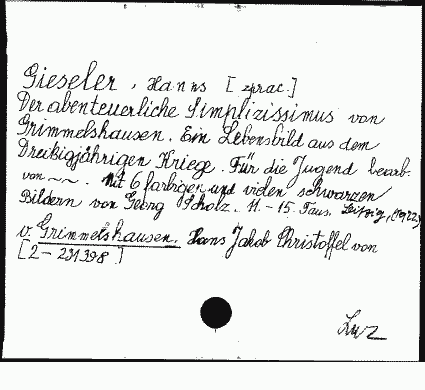 Gieseler, Hanns [zprac.]
Der abenteuerliche Simplizissimus von
Grimmelshausen. Ein Lebensbild aus dem
Dreißigjährigen Kriege. Für die Jugend bearb.
von ~~. Mit 6 farbigen und vielen schwarzen
Bildern von Georg Scholz. 11.-15. Taus. Leipzig, (1922)
v. Grimmelshausen, Hans Jakob Christoffel von
[2-231398]